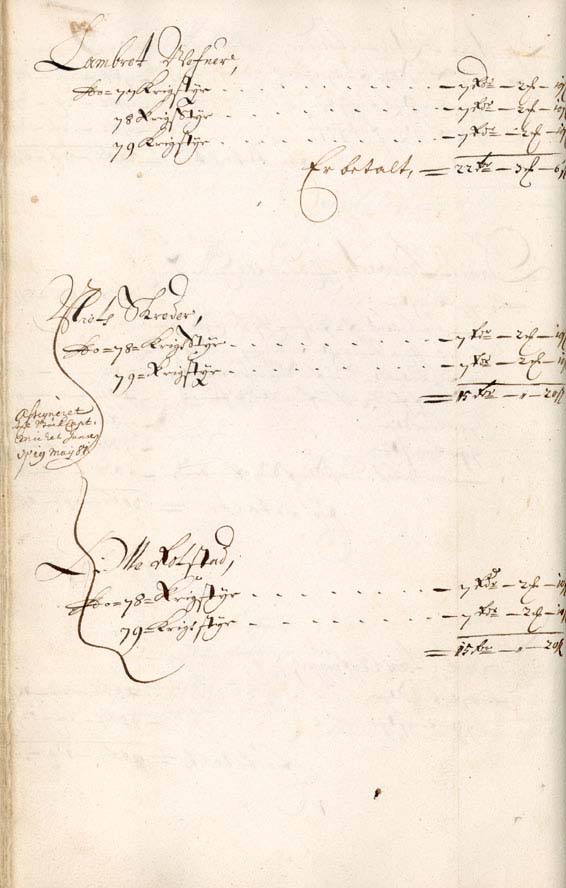 Lambret Wefuer,
Ao = 77 Krigstyr – 7 Rdr – 2 –
78 Krigstyr – 7 Rdr – 2 –
79 Krigstyr – 7 Rdr – 2 –
Er betalt, = 22 Rdr – 3 – 6
Niels Skröder,
Ao = 78 = Krigstyr – 7 Rdr – 2 –
79 = Krigstyr – 7 Rdr – 2 –
= 15 Rdr – " – 20
Assigneret
Capt.
Jensen
19 May 81
Rolstad,
Ao = 78 = Krigstyr – 7 Rdr – 2 –
79 = Krigstyr – 7 Rdr – 2 –
= 15 Rdr – " – 20